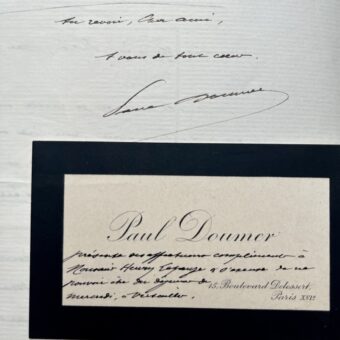 Au revoir, cher ami,
à vous de tout cœur.
Paul Doumer
Paul Doumer
présente ses affectueux compliments à
Monsieur Henry Lapauze et s'excuse de ne
pouvoir être du déjeuner de
15, Boulevard Delessert,
mercredi, à Versailles.
Paris XVIe